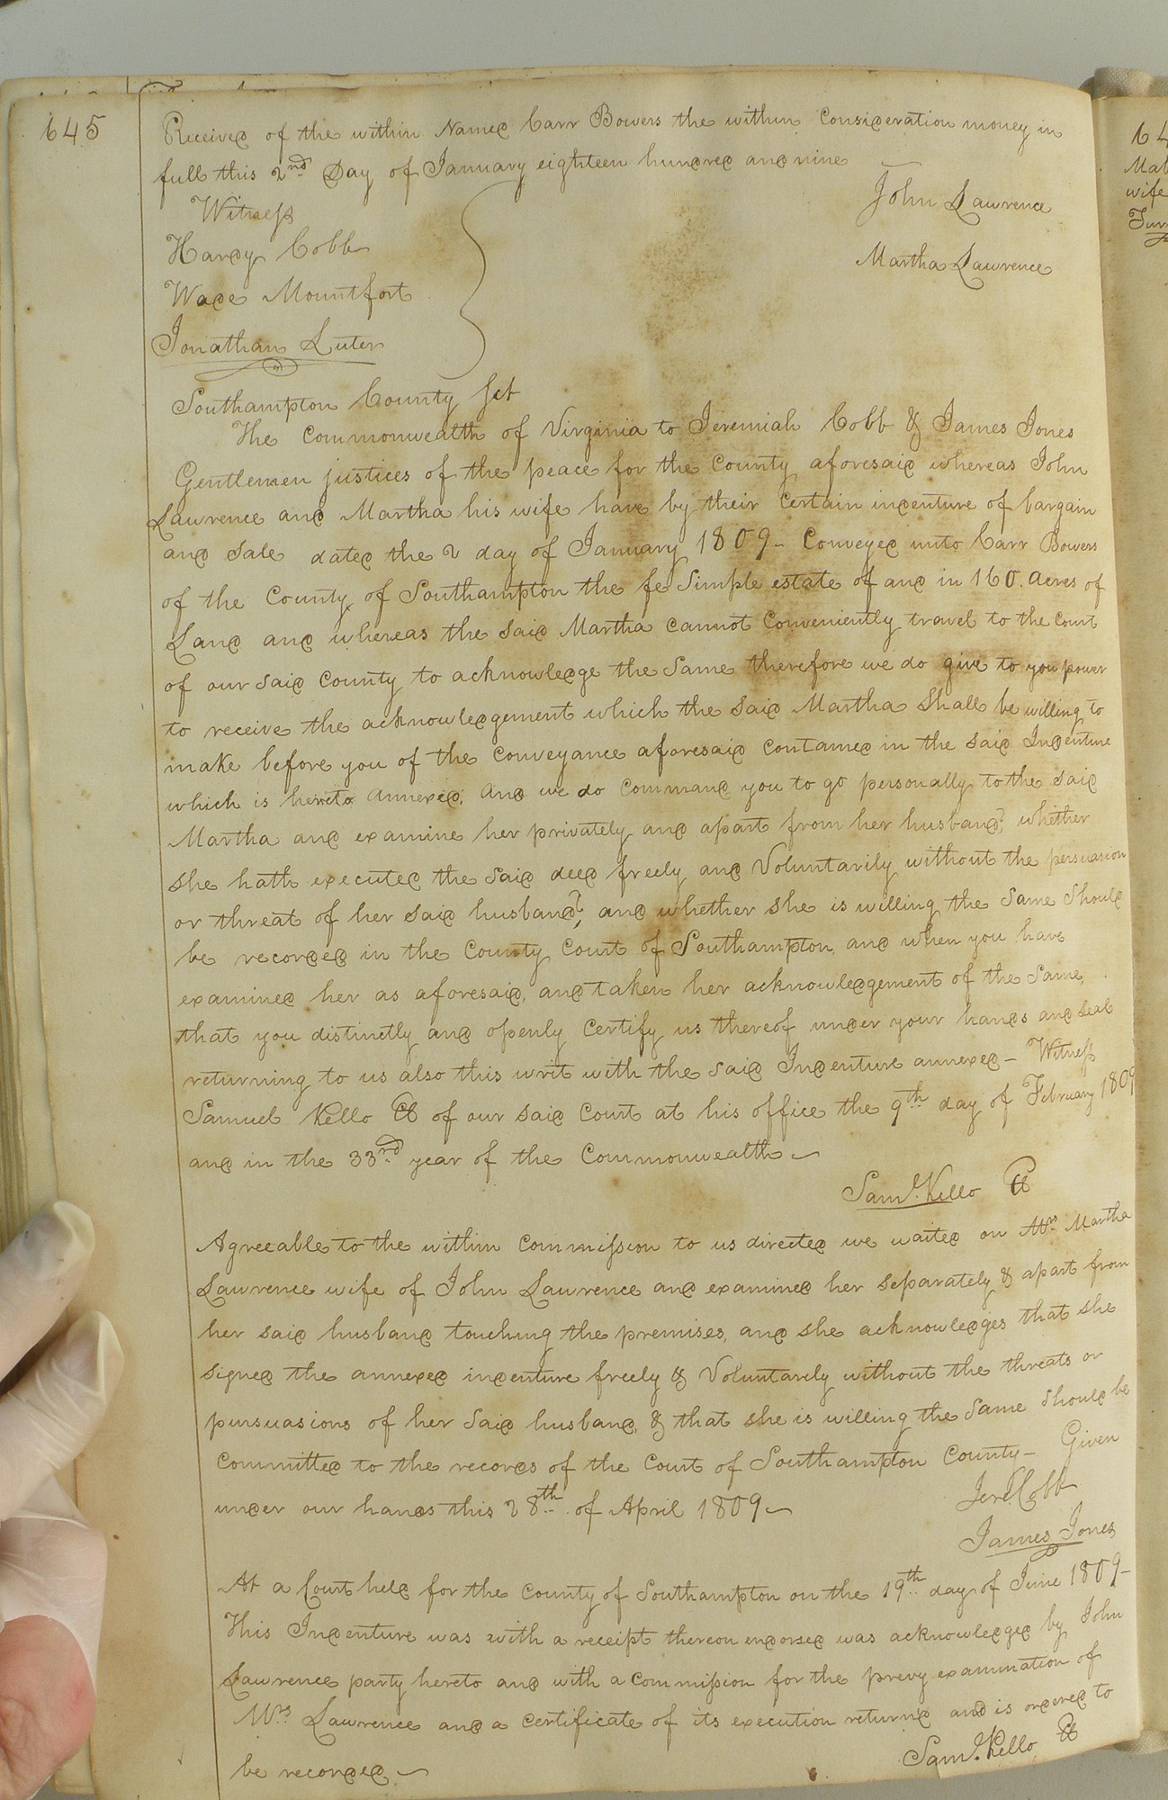 645
Received of the within Named Carr Bowers the within Consideration money in
full this 2nd Day of January eighteen hundred and nine
Witness
John Lawrence
Hardy Cobb
Martha Lawrence
Wade Mountfort
Jonathan Luter
Southampton County Sct
The Commonwealth of Virginia to Jeremiah Cobb & James Jones
Gentlemen justices of the peace for the County aforesaid whereas John
Lawrence and Martha his wife have by their Certain indenture of bargain
and Sale dated the 2 day of January 1809 - Conveyed unto Carr Bowers
of the County of Southampton the fe Simple estate of and in 160. Acres of
Land and whereas the said Martha cannot Conveniently travel to the Court
of our said County to acknowledge the Same therefore we do give to you power
to receive the acknowledgement which the said Martha Shall be willing to
make before you of the Conveyance aforesaid Contained in the said Indenture
which is hereto annexed, And we do Command you to go personally to the said
Martha and examine her privately and apart from her husband, whether
she hath executed the said deed freely and Voluntarily without the persuasion
or threat of her said husband, and whether she is willing the Same Should
be recorded in the County Court of Southampton, and when you have
examined her as aforesaid, and taken her acknowledgement of the Same,
that you distinctly and openly Certify us thereof under your hands and Seal
returning to us also this writ with the said Indenture annexed - Witness
Samuel Kello Cl of our said Court at his office the 9th day of February 1809
and in the 33rd year of the Commonwealth
Saml. Kello Cl
Agreeable to the within Commission to us directed we waited on Mrs Martha
Lawrence wife of John Lawrence and examined her separately & apart from
her said husband touching the premises, and she acknowledges that she
signed the annexed indenture freely & Voluntarily without the threats or
pursuasions of her said husband, & that she is willing the Same Should be
Committed to the records of the Court of Southampton County - Given
under our hands this 28th of April 1809
Jerd Cobb
James Jones
At a Court held for the County of Southampton on the 19th day of June 1809 -
This Indenture was with a receipt thereon endorsed was acknowledged by John
Lawrence party hereto and with a Commission for the prevy examination of
Mrs Lawrence and a Certificate of its execution returnd and is ordered to
be recorded
Saml. Kello Cl
64
wife